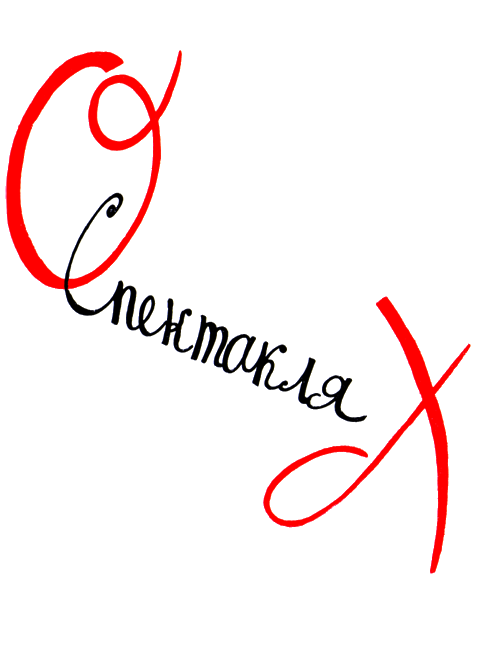 О
Спентакля
Х